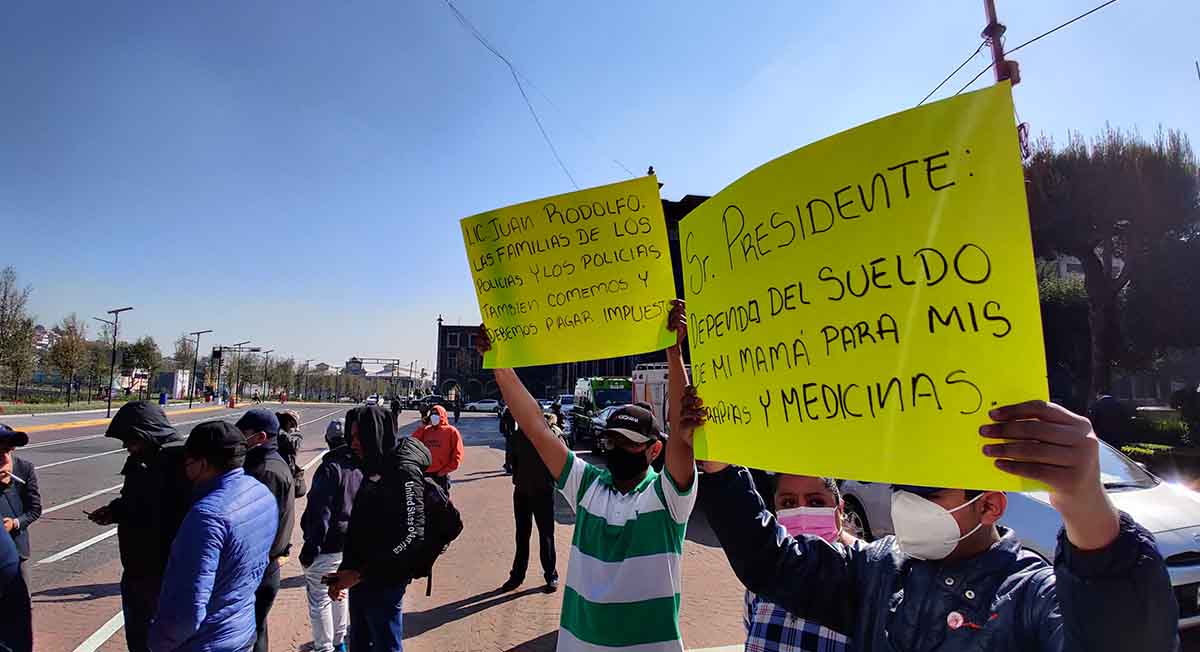 LIC JUAN RODOLFO.
LAS FAMILIAS DE LOS
POLICIAS Y LOS POLICIAS
TAMBIEN COMEMOS Y
DEBEMOS PAGAR IMPUEST
Sr. PRESIDENTE:
DEPENDO DEL SUELDO
DE MI MAMÁ PARA MIS
RAPIAS Y MEDICINAS.
United States of America